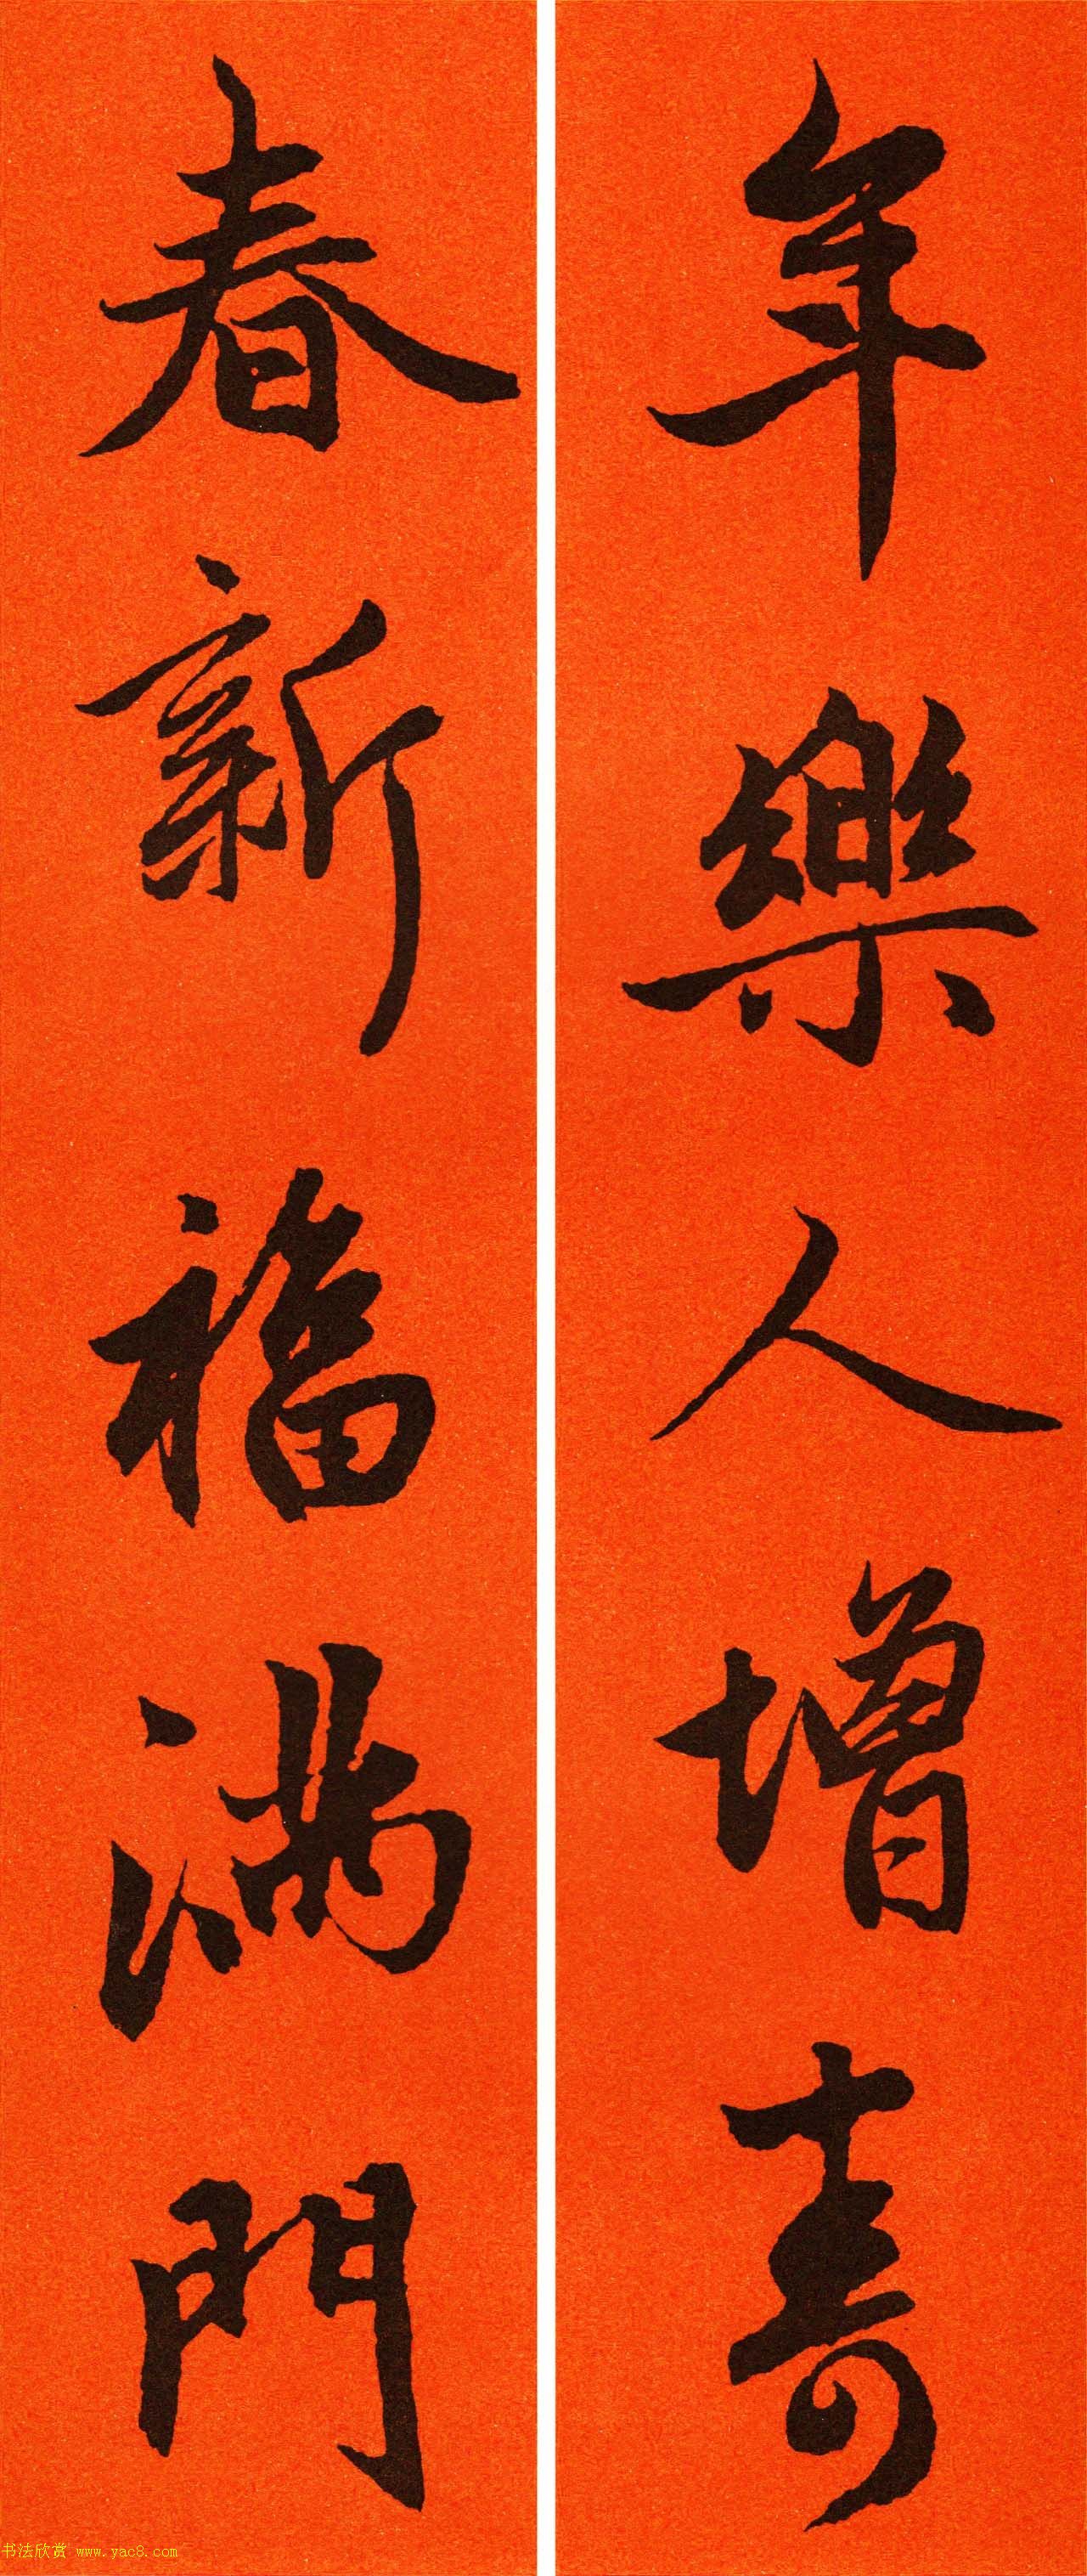 年樂人增壽
春新福滿門
书法欣赏 www.yac8.com